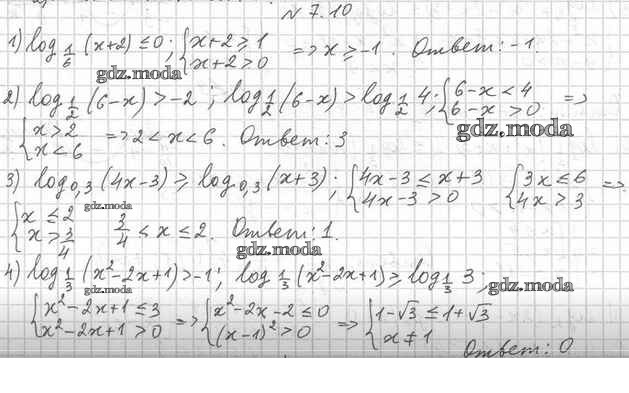 № 7.10
1) log_{1/6} (x+2) ≤ 0; { x+2 ≥ 1 x+2 > 0 => x ≥ -1. Ответ: -1.
gdz.moda
2) log_{1/2} (6-x) > -2; log_{1/2} (6-x) > log_{1/2} 4; { 6-x < 4 6-x > 0 =>
gdz.moda
{ x > 2 x < 6 => 2 < x < 6. Ответ: 3
3) log_{0,3} (4x-3) ≥ log_{0,3} (x+3); { 4x-3 ≤ x+3 4x-3 > 0 { 3x ≤ 6 4x > 3 =>
gdz.moda
{ x ≤ 2 x > 3/4 3/4 < x ≤ 2. Ответ: 1.
gdz.moda
4) log_{1/3} (x²-2x+1) > -1; log_{1/3} (x²-2x+1) ≥ log_{1/3} 3;
gdz.moda gdz.moda
{ x²-2x+1 ≤ 3 x²-2x+1 > 0 => { x²-2x-2 ≤ 0 (x-1)² > 0 => { 1-√3 ≤ 1+√3 x ≠ 1
Ответ: 0